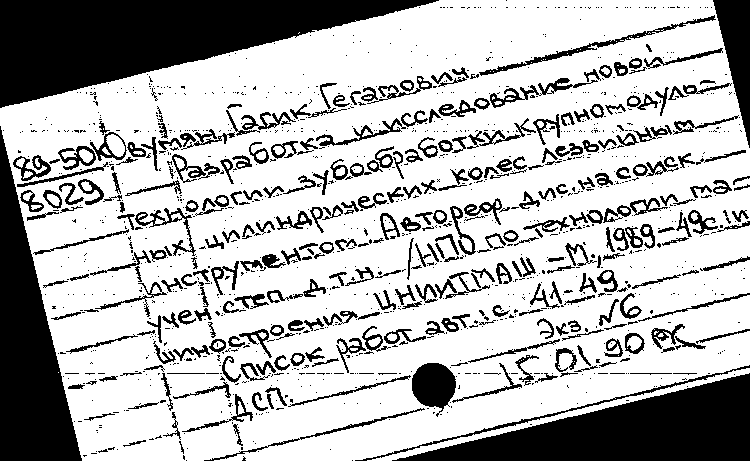 89-50К Овумян, Гагик Гегамович
8029 Разработка и исследование новой
технологии зубообработки крупномодуль-
ных цилиндрических колес лезвийным
инструментом: Автореф. дис. на соиск.
учен. степ. д.т.н. /НПО по технологии ма-
шиностроения ЦНИИТМАШ. -М., 1989-49с.:ил
Список работ авт.: с. 41-49.
ДСП. Экз. №6.
15.01.90 РК